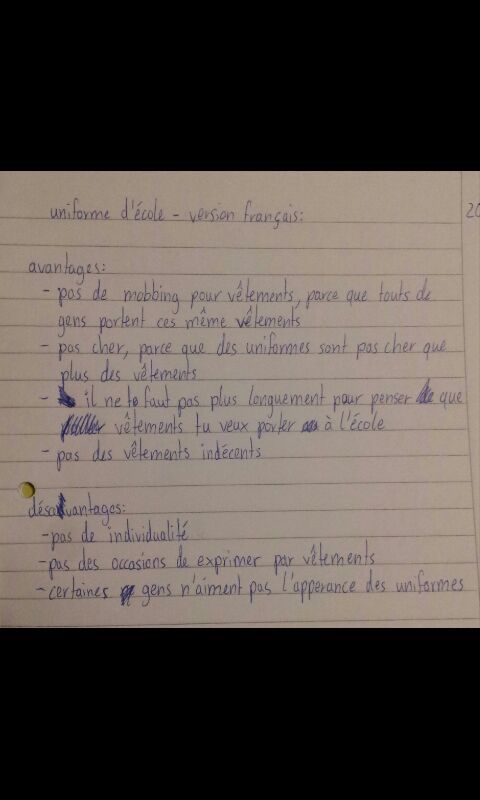 uniforme d'école - version français:
20
avantages:
- pas de mobbing pour vêtements, parce que touts de
gens portent ces même vêtements
- pas cher, parce que des uniformes sont pas cher que
plus des vêtements
- il ne te faut pas plus longuement pour penser que
vêtements tu veux porter à l'école
- pas des vêtements indécents
désavantages:
- pas de individualité
- pas des occasions de exprimer par vêtements
- certaines gens n'aiment pas l'apperance des uniformes